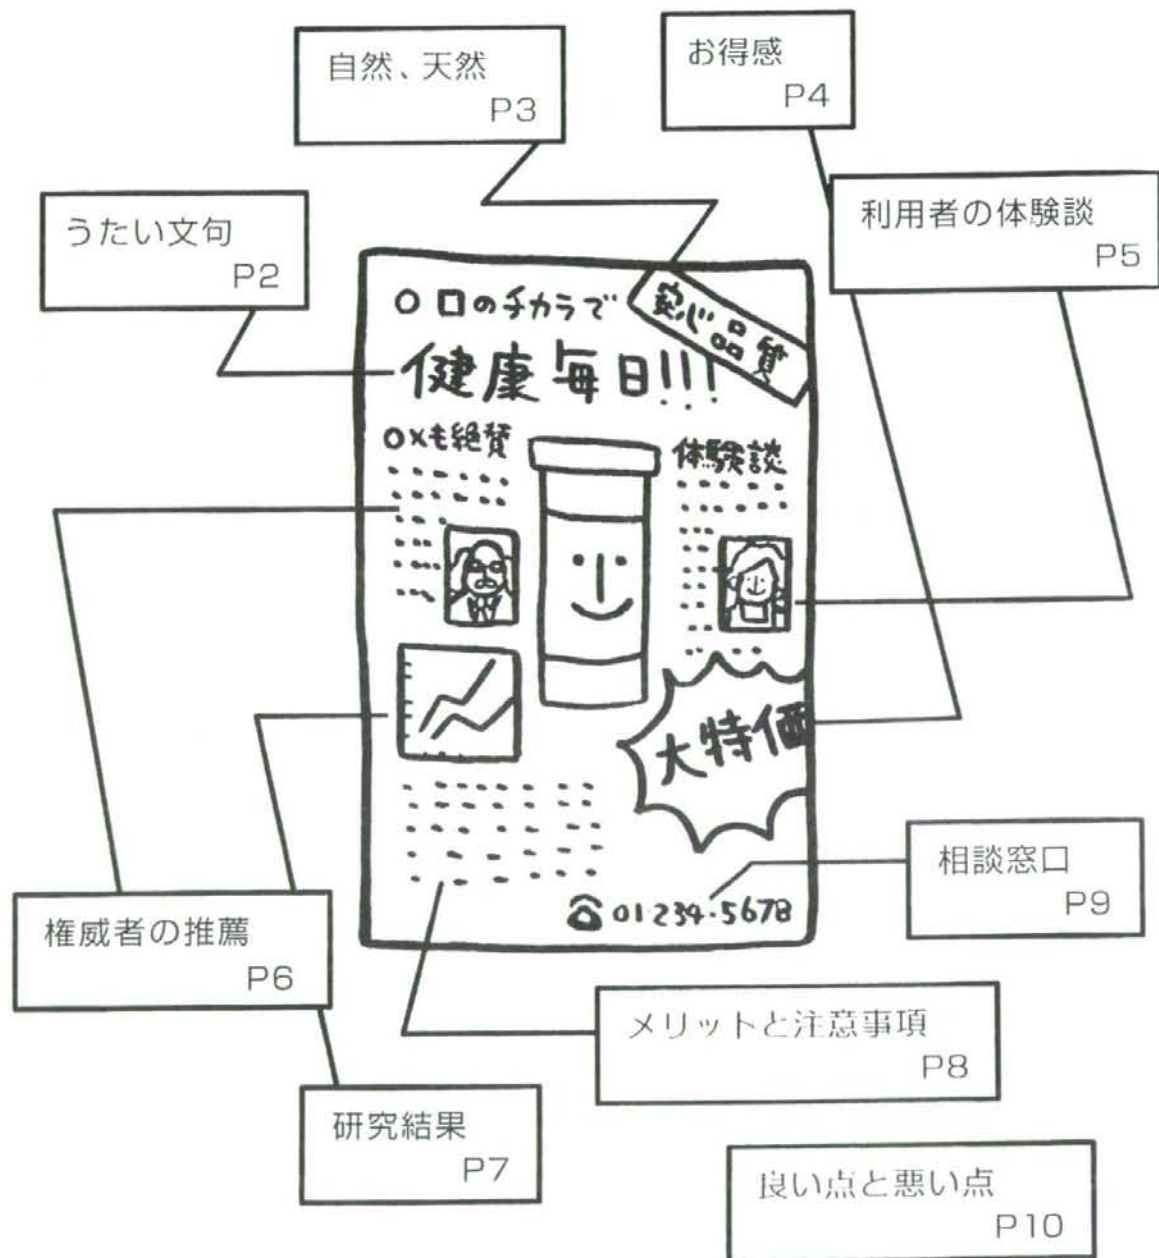 自然、天然
P3
お得感
P4
うたい文句
P2
利用者の体験談
P5
○□のチカラで
安心品質
健康毎日!!!
○×も絶賛
体験談
大特価
☎01-234-5678
相談窓口
P9
権威者の推薦
P6
メリットと注意事項
P8
研究結果
P7
良い点と悪い点
P10